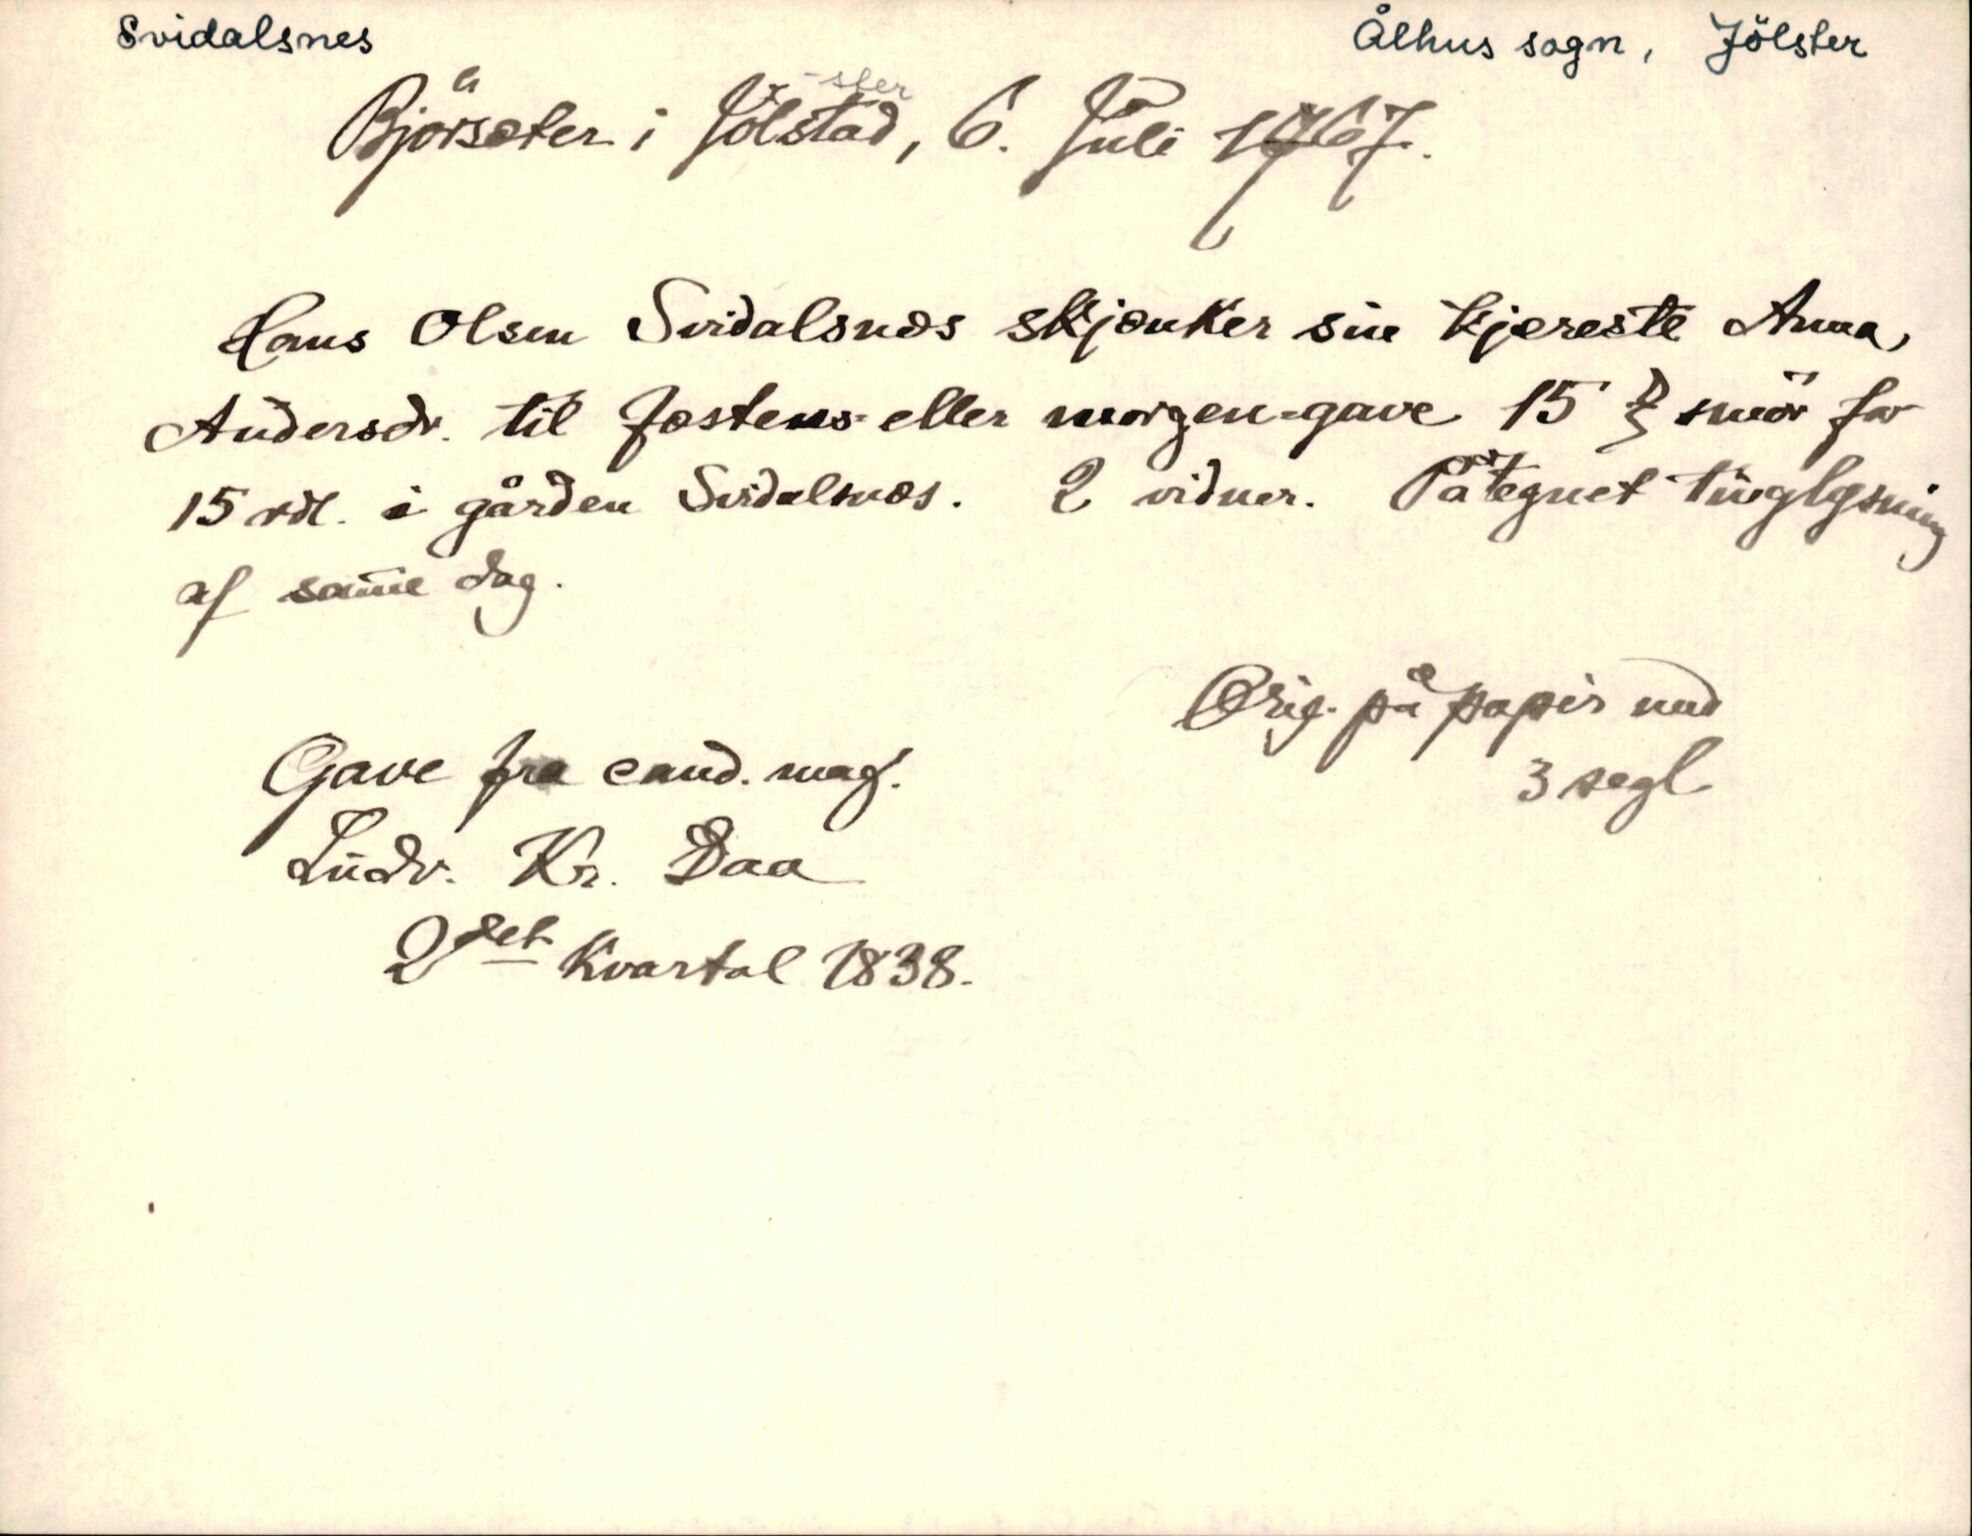 Svidalsnes
Ålhus sogn, Jölster
-ster
Björsæter i Jölstad, 6. Juli 1767.
Hans Olsen Svidalsnæs skjænker sin kjæreste Anna
Andersdr. til fæstens- eller morgen-gave 15 ℔ smör for
15 rdl. i gården Svidalsnæs. 2 vidner. Påtegnet tinglysning
af samme dag.
Orig. på papir med
3 segl
Gave fra cand. mag.
Ludv. Kr. Daa
2det Kvartal 1838.